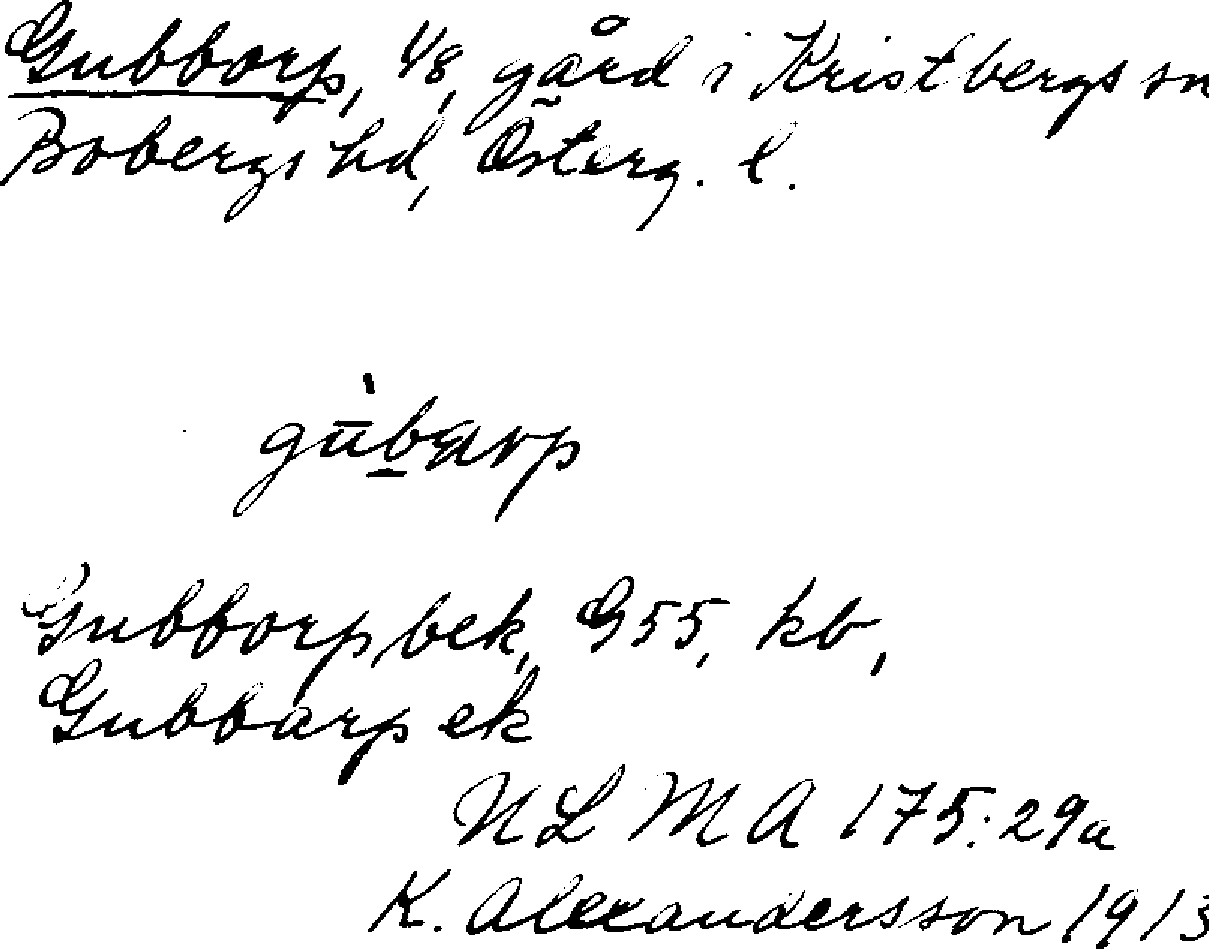 Gubborp, 1/8, gård i Kristbergs sn
Bobergs hd, Österg. l.
gùbarp
Gubborp, bek, G55, kb,
Gubbarp ek
NLMA 175:29a
K. Alexandersson 1913